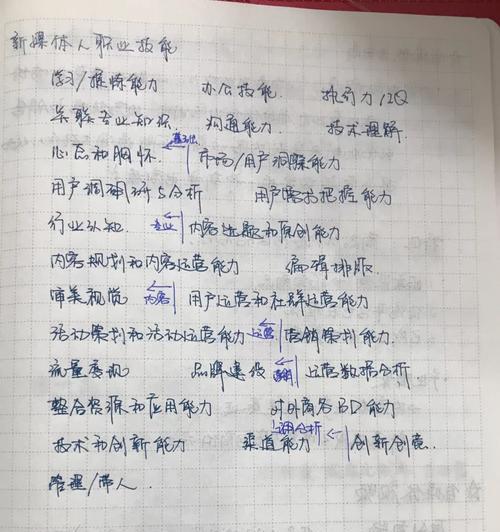 新媒体人职业技能
学习/提炼能力 办公技能 执行力 IQ
关联专业知识 沟通能力 技术理解
心态和胸怀 ← 市场/用户洞察能力
用户调研与分析 用户需求把握能力
行业认知 ← 专业 内容选题和原创能力
内容规划和内容运营能力 编辑排版
审美视觉 ← 内容 用户运营和社群运营能力
活动策划和活动运营能力 ← 运营 营销策划能力
流量变现 品牌建设 ← 运营数据分析
整合资源和应用能力 对外商务BD能力
技术和创新能力 渠道能力 ← 创新创意
管理/带人